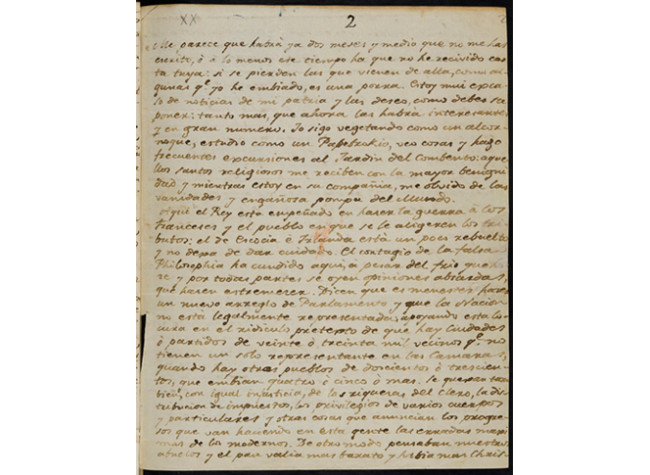 XX 2
Me parece que habrá ya dos meses y medio que no me has
escrito, ó á lo menos ese tiempo ha que no he recivido car
ta tuya: si se pierden las que vienen de alla, como al
gunas q.e yo he embiado, es una porra. Estoy mui esca
so de noticias de mi patria y las deseo, como debes su
poner: tanto mas, que ahora las habrá interesantes
y en gran numero. Io sigo vegetando como un alcor
noque, estudio como un Papefrukio, veo cosas y hago
frecuentes excursiones al Jardin del Combento: aque
llos santos religiosos me reciben con la mayor benigni
dad y mientras estoy en su compañia, me olvido de las
vanidades y engañosa pompa del Mundo.
Aqui el Rey está empeñado en hacer la guerra á los
franceses y el pueblo en que se le aligeren los tri
butos: el de Escocia é Irlanda está un poco rebuelto
y no deja de dar cuidado. El contagio de la falsa
Philosophia ha cundido aqui, á pesar del frio que ha
ce y por todas partes se oyen opiniones absurdas,
que hacen estremecer. Dicen que es menester hacer
un nuevo arreglo de Parlamento y que la Nacion
no está legalmente representada, apoyando esta lo
cura en el ridiculo pretexto de que hay Ciudades
ó partidos de veinte ó treinta mil vecinos q.e no
tienen un solo representante en las Camaras,
quando hay otros pueblos de doscientos ó trescien
tos, que embian quatro ó cinco ó mas. Se quexan tam
bien, con igual injusticia, de las riquezas del Clero, la dis
tribucion de impuestos, los privilegios de varios cuerpos
y particulares y otras cosas que anuncian los progre
sos que van haciendo en esta gente las erradas maxi
mas de los modernos. De otro modo pensaban nuestros
abuelos y el pan valia mas barato y habia mas Christ